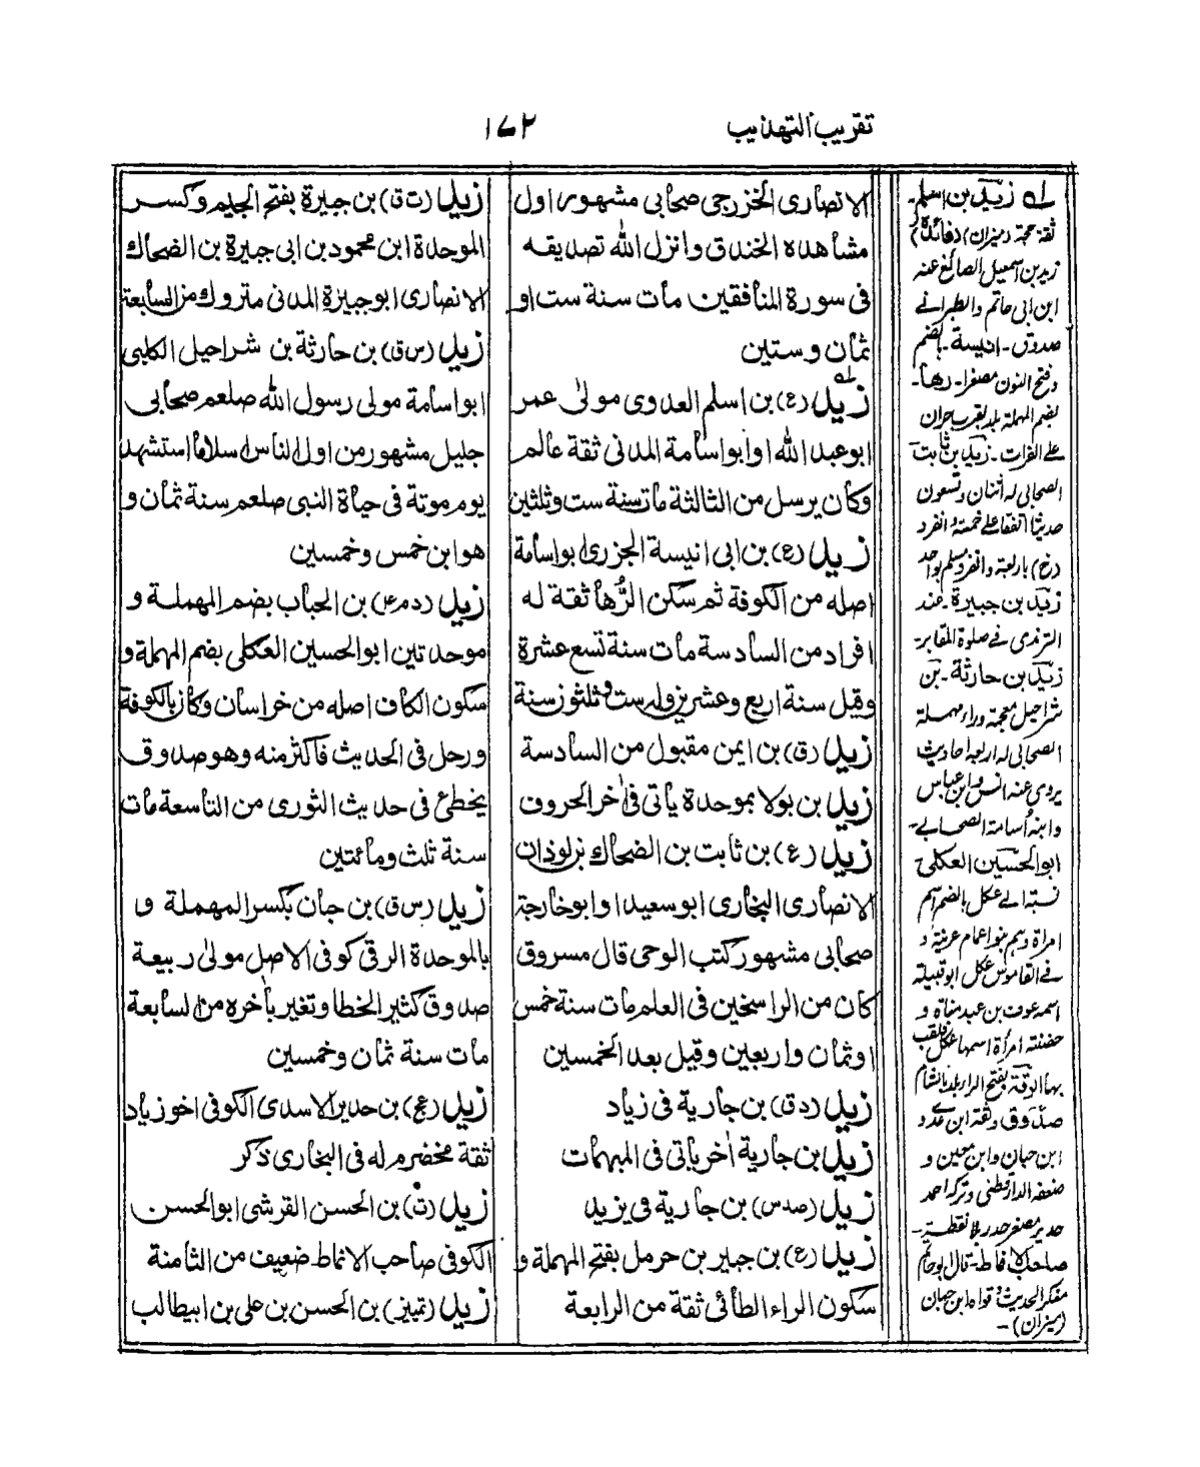 تقريب التهذيب
١٧٢
الانصارى الخزرجى صحابى مشهور اول
مشاهده الخندق وانزل الله تصديقه
فى سورة المنافقين مات سنة ست او
ثمان وستين
زيد (ع) بن اسلم العدوى مولى عمر
ابو عبد الله او ابو اسامة المدنى ثقة عالم
وكان يرسل من الثالثة مات سنة ست وثلثين
زيد (ع) بن ابى انيسة الجزرى ابو اسامة
اصله من الكوفة ثم سكن الرُّها ثقة له
افراد من السادسة مات سنة تسع عشرة
وقيل سنة اربع وعشرين وله ست وثلثون سنة
زيد (ق) بن ايمن مقبول من السادسة
زيد بن بولا بموحدة يأتى فى أخر الحروف
زيد (ع) بن ثابت بن الضحاك بن لوذان
الانصارى البخارى ابو سعيد او ابو خارجة
صحابى مشهور كتب الوحى قال مسروق
كان من الراسخين فى العلم مات سنة خمس
او ثمان واربعين وقيل بعد الخمسين
زيد (دق) بن جارية فى زياد
زيد بن جارية أخر يأتى فى المبهمات
زيد (صدس) بن جارية فى يزيد
زيد (ع) بن جبير بن حرمل بفتح المهملة و
سكون الراء الطائى ثقة من الرابعة
زيد (ت ق) بن جبيرة بفتح الجيم وكسر
الموحدة ابن محمود بن ابى جبيرة بن الضحاك
الانصارى ابو جبيرة المدنى متروك من السابعة
زيد (س ق) بن حارثة بن شراحيل الكلبى
ابو اسامة مولى رسول الله صلعم صحابى
جليل مشهور من اول الناس اسلاما استشهد
يوم موتة فى حياة النبى صلعم سنة ثمان و
هو ابن خمس وخمسين
زيد (دم عه) بن الحباب بضم المهملة و
موحدتين ابو الحسين العكلى بضم المهملة و
سكون الكاف اصله من خراسان وكان بالكوفة
ورحل فى الحديث فاكثر منه وهو صدوق
يخطئ فى حديث الثورى من التاسعة مات
سنة ثلث ومائتين
زيد (س ق) بن حبان بكسر المهملة و
بالموحدة الرقى كوفى الاصل مولى ربيعة
صدوق كثير الخطا وتغير بأخره من السابعة
مات سنة ثمان وخمسين
زيد (عخ) بن حدير الاسدى الكوفى اخو زياد
ثقة مخضرم له فى البخارى ذكر
زيد (ت) بن الحسن القرشى ابو الحسن
الكوفى صاحب الانماط ضعيف من الثامنة
زيد (تمييز) بن الحسن بن على بن ابيطالب
له زيد بن اسلم-
ثقة حجة (ميزان) (فائدة)
زيد بن اسمعيل الصائغ عنه
ابن ابى حاتم والطبرانى
صدوق- انيسة- بضم
وفتح النون مصغرا- رها-
بضم المهملة بلد بقرب حران
على الفرات- زيد بن ثابت
الصحابى له اثنان وتسعون
حديثا اتفقا على خمسة وانفرد
(خ) باربعة وانفرد مسلم بواحد
زيد بن جبيرة- عند
الترمذى فى صلوة المقابر-
زيد بن حارثة- بن
شراحيل معجمة وراء مهملة
الصحابى له اربعة احاديث
يروى عنه انس وابن عباس
وابنه اسامة الصحابى-
ابو الحسين العكلى
نسبة الى عكل بالضم اسم
امرأة وهم بنو اعمام
فى القاموس عكل ابو قبيلة
اسمه عوف بن عبد مناة و
حضنته امرأة اسمها عكل فلقب
بها الرقة بفتح الراء بلد بالشام
صدوق وثقه ابن عدى و
ابن حبان وابن معين و
ضعفه الدارقطنى وتركه احمد
حدير مصغر حدر بلا نقطة-
صاحب الانماط- قال ابو حاتم
منكر الحديث وقواه ابن حبان
(ميزان)-